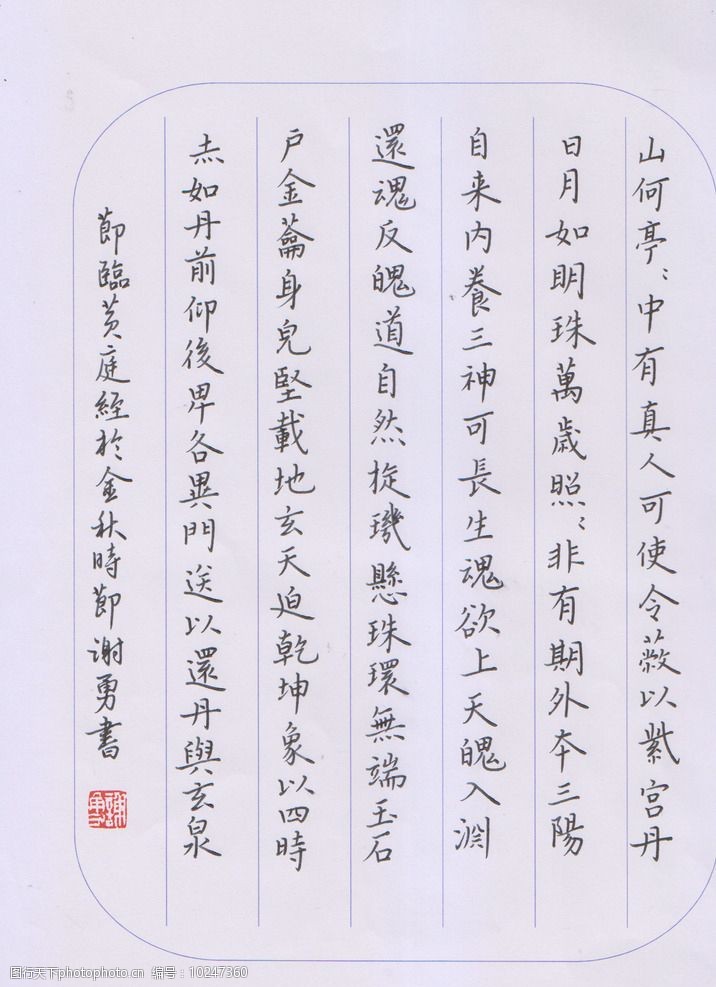 山何亭〻中有真人可使令蔽以紫宫丹
日月如明珠萬歲照〻非有期外夲三陽
自来内養三神可長生魂欲上天魄入淵
還魂反魄道自然㨔璣懸珠環無端玉石
戶金蘥身皃堅載地玄天迫乾坤象以四時
赤如丹前仰後卑各異門送以還丹與玄泉
節臨黄庭經於金秋時節謝勇書
謝勇
图行天下photophoto.cn 编号:10247360